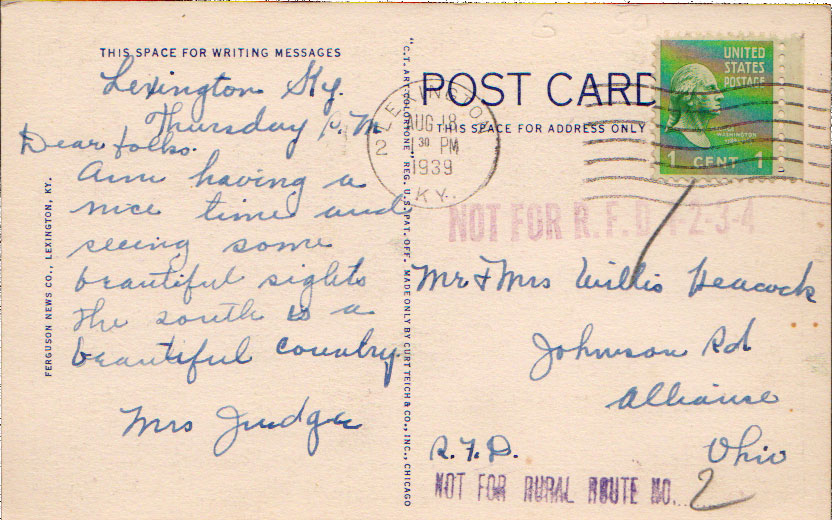 THIS SPACE FOR WRITING MESSAGES
Lexington Ky.
Thursday P.M.
Dear folks.
Am having a
nice time and
seeing some
beautiful sights
The south is a
beautiful country.
Mrs Judge
FERGUSON NEWS CO., LEXINGTON, KY.
"C.T. ART-COLORTONE" REG. U.S. PAT. OFF. MADE ONLY BY CURT TEICH & CO., INC., CHICAGO
POST CARD
THIS SPACE FOR ADDRESS ONLY
LEXINGTON
AUG 18
1 30 PM
1939
2
KY.
UNITED
STATES
POSTAGE
WASHINGTON
1 CENT 1
NOT FOR R.F.D. 1-2-3-4
Mr & Mrs Willis Heacock
Johnson Rd
Alliance
R.F.D. Ohio
NOT FOR RURAL ROUTE NO. 2